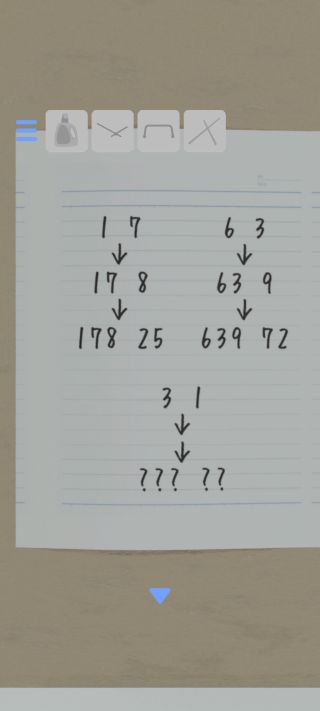 1 7 6 3
↓ ↓
17 8 63 9
↓ ↓
178 25 639 72
3 1
↓
↓
??? ??